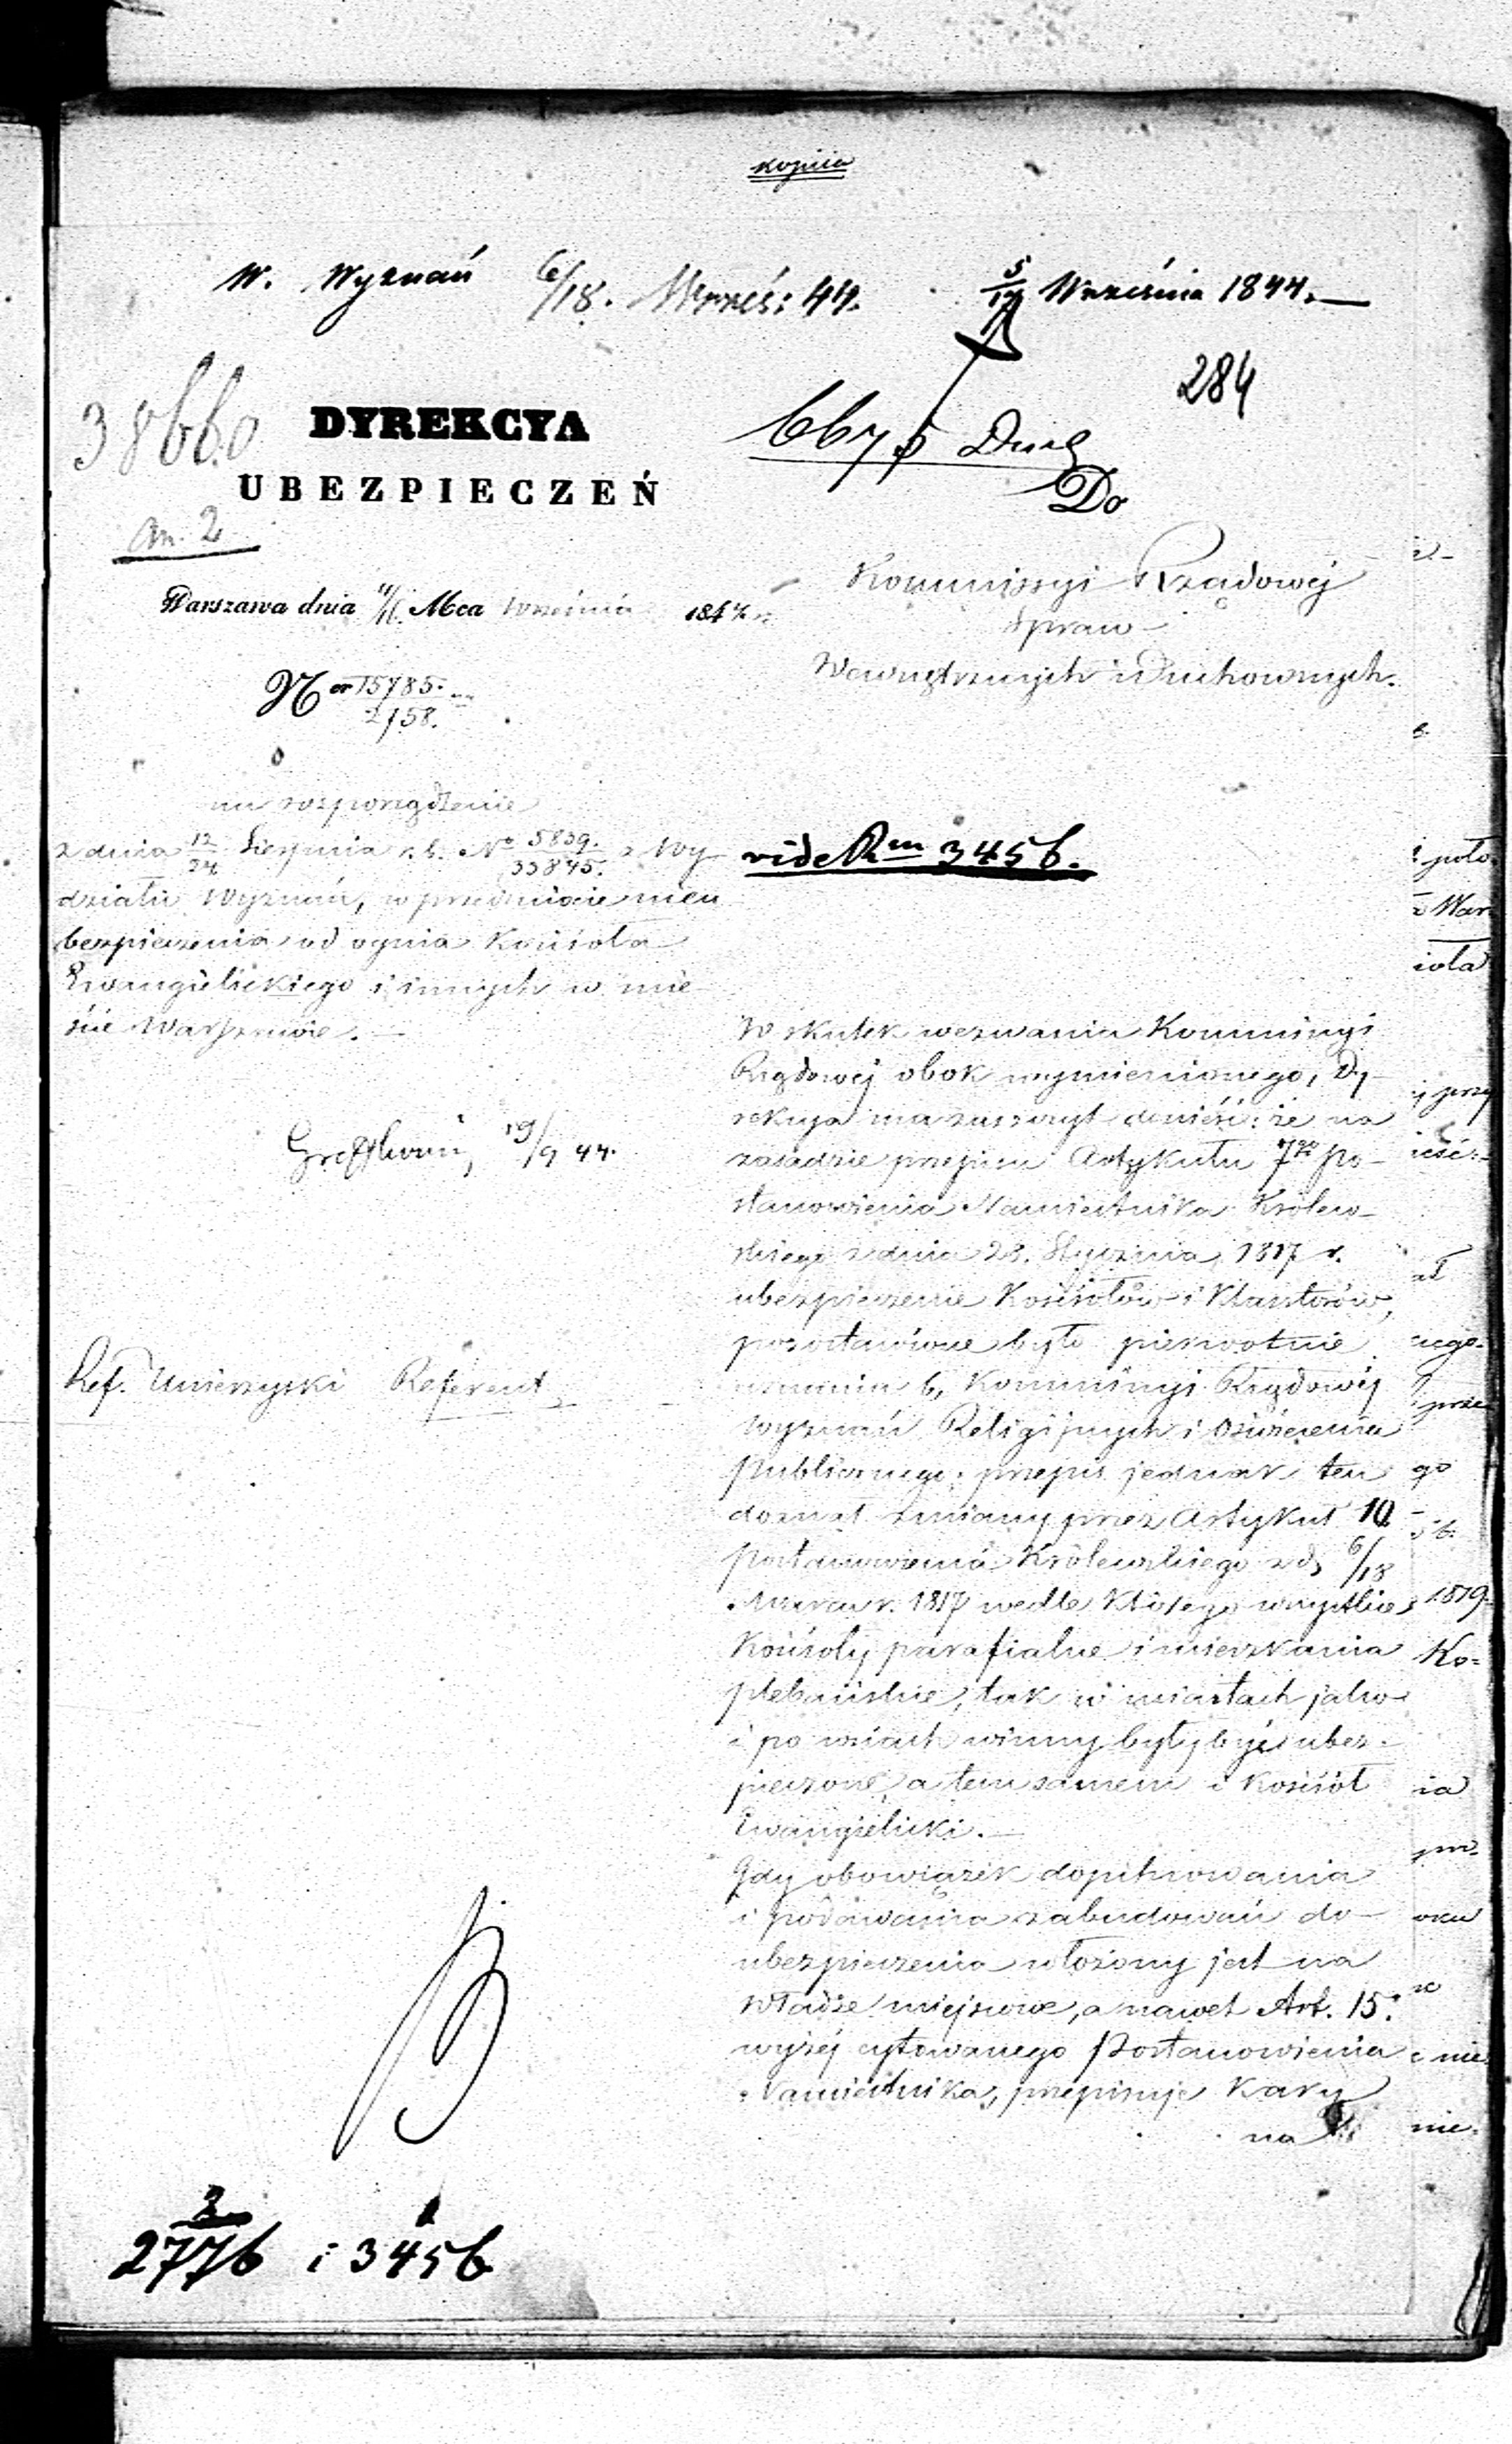 kopiia
W. Wyznań 6/18. Wrześ: 44. 5/17 Września 1844.
284
38660
DYREKCYA
UBEZPIECZEŃ
Do
an. 2
Kommissyi Rządowéj
Spraw
Wewnętrznych i Duchownych.
Warszawa dnia 4/16 Mca Września 1844 r.
Ner 15785.
2158.
na rozporządzenie
z dnia 12/24 Sierpnia r. b. No 5839./33845. z Wy-
działu Wyznań, w przedmiocie nieu
bezpieczenia od ognia Kościoła
Ewangielickiego i innych w mie-
ście Warszawie.
vide Rm 3456.
19/9 44.
Ref. Referent
W skutek wezwania Kommissyi
Rządowéj obok wymienionego, Dy-
rekcya ma zaszczyt donieść: że na
zasadzie przepisu Artykułu 7go Po-
stanowienia Namiestnika Królew-
skiego z dnia 28. Stycznia 1817 r.
ubezpieczenie Kościołów i Klasztorów,
pozostawione było pierwotnie
uznaniu b. Kommissyi Rządowéj
Wyznań Religijnych i Oświecenia
Publicznego; przepis jednak ten
doznał zmiany przez Artykuł 10
Postanowienia Królewskiego z d. 6/18
Marca r. 1817 wedle którego wszystkie
Kościoły parafialne i mieszkania
plebańskie, tak w miastach jako
i po wsiach winny były być ubez-
pieczone, a tem samem i Kościół
Ewangielicki.
Gdy obowiązek dopilnowania
i podawania zabudowań do
ubezpieczenia włożony jest na
Władze miejscowe, a nawet Art. 15.
wyżéj cytowanego Postanowienia
Namiestnika, przepisuje Kary
na
2
2776 i 3456